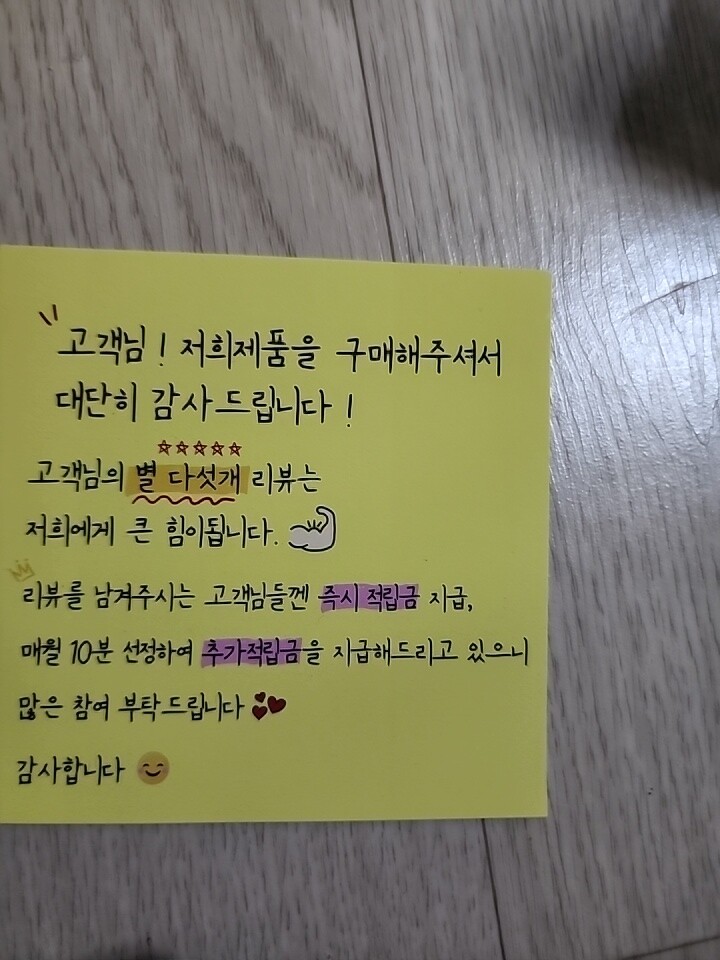 고객님! 저희제품을 구매해주셔서
대단히 감사드립니다!
고객님의 별 다섯개 리뷰는
저희에게 큰 힘이됩니다.
리뷰를 남겨주시는 고객님들껜 즉시 적립금 지급,
매월 10분 선정하여 추가적립금을 지급해드리고 있으니
많은 참여 부탁드립니다
감사합니다